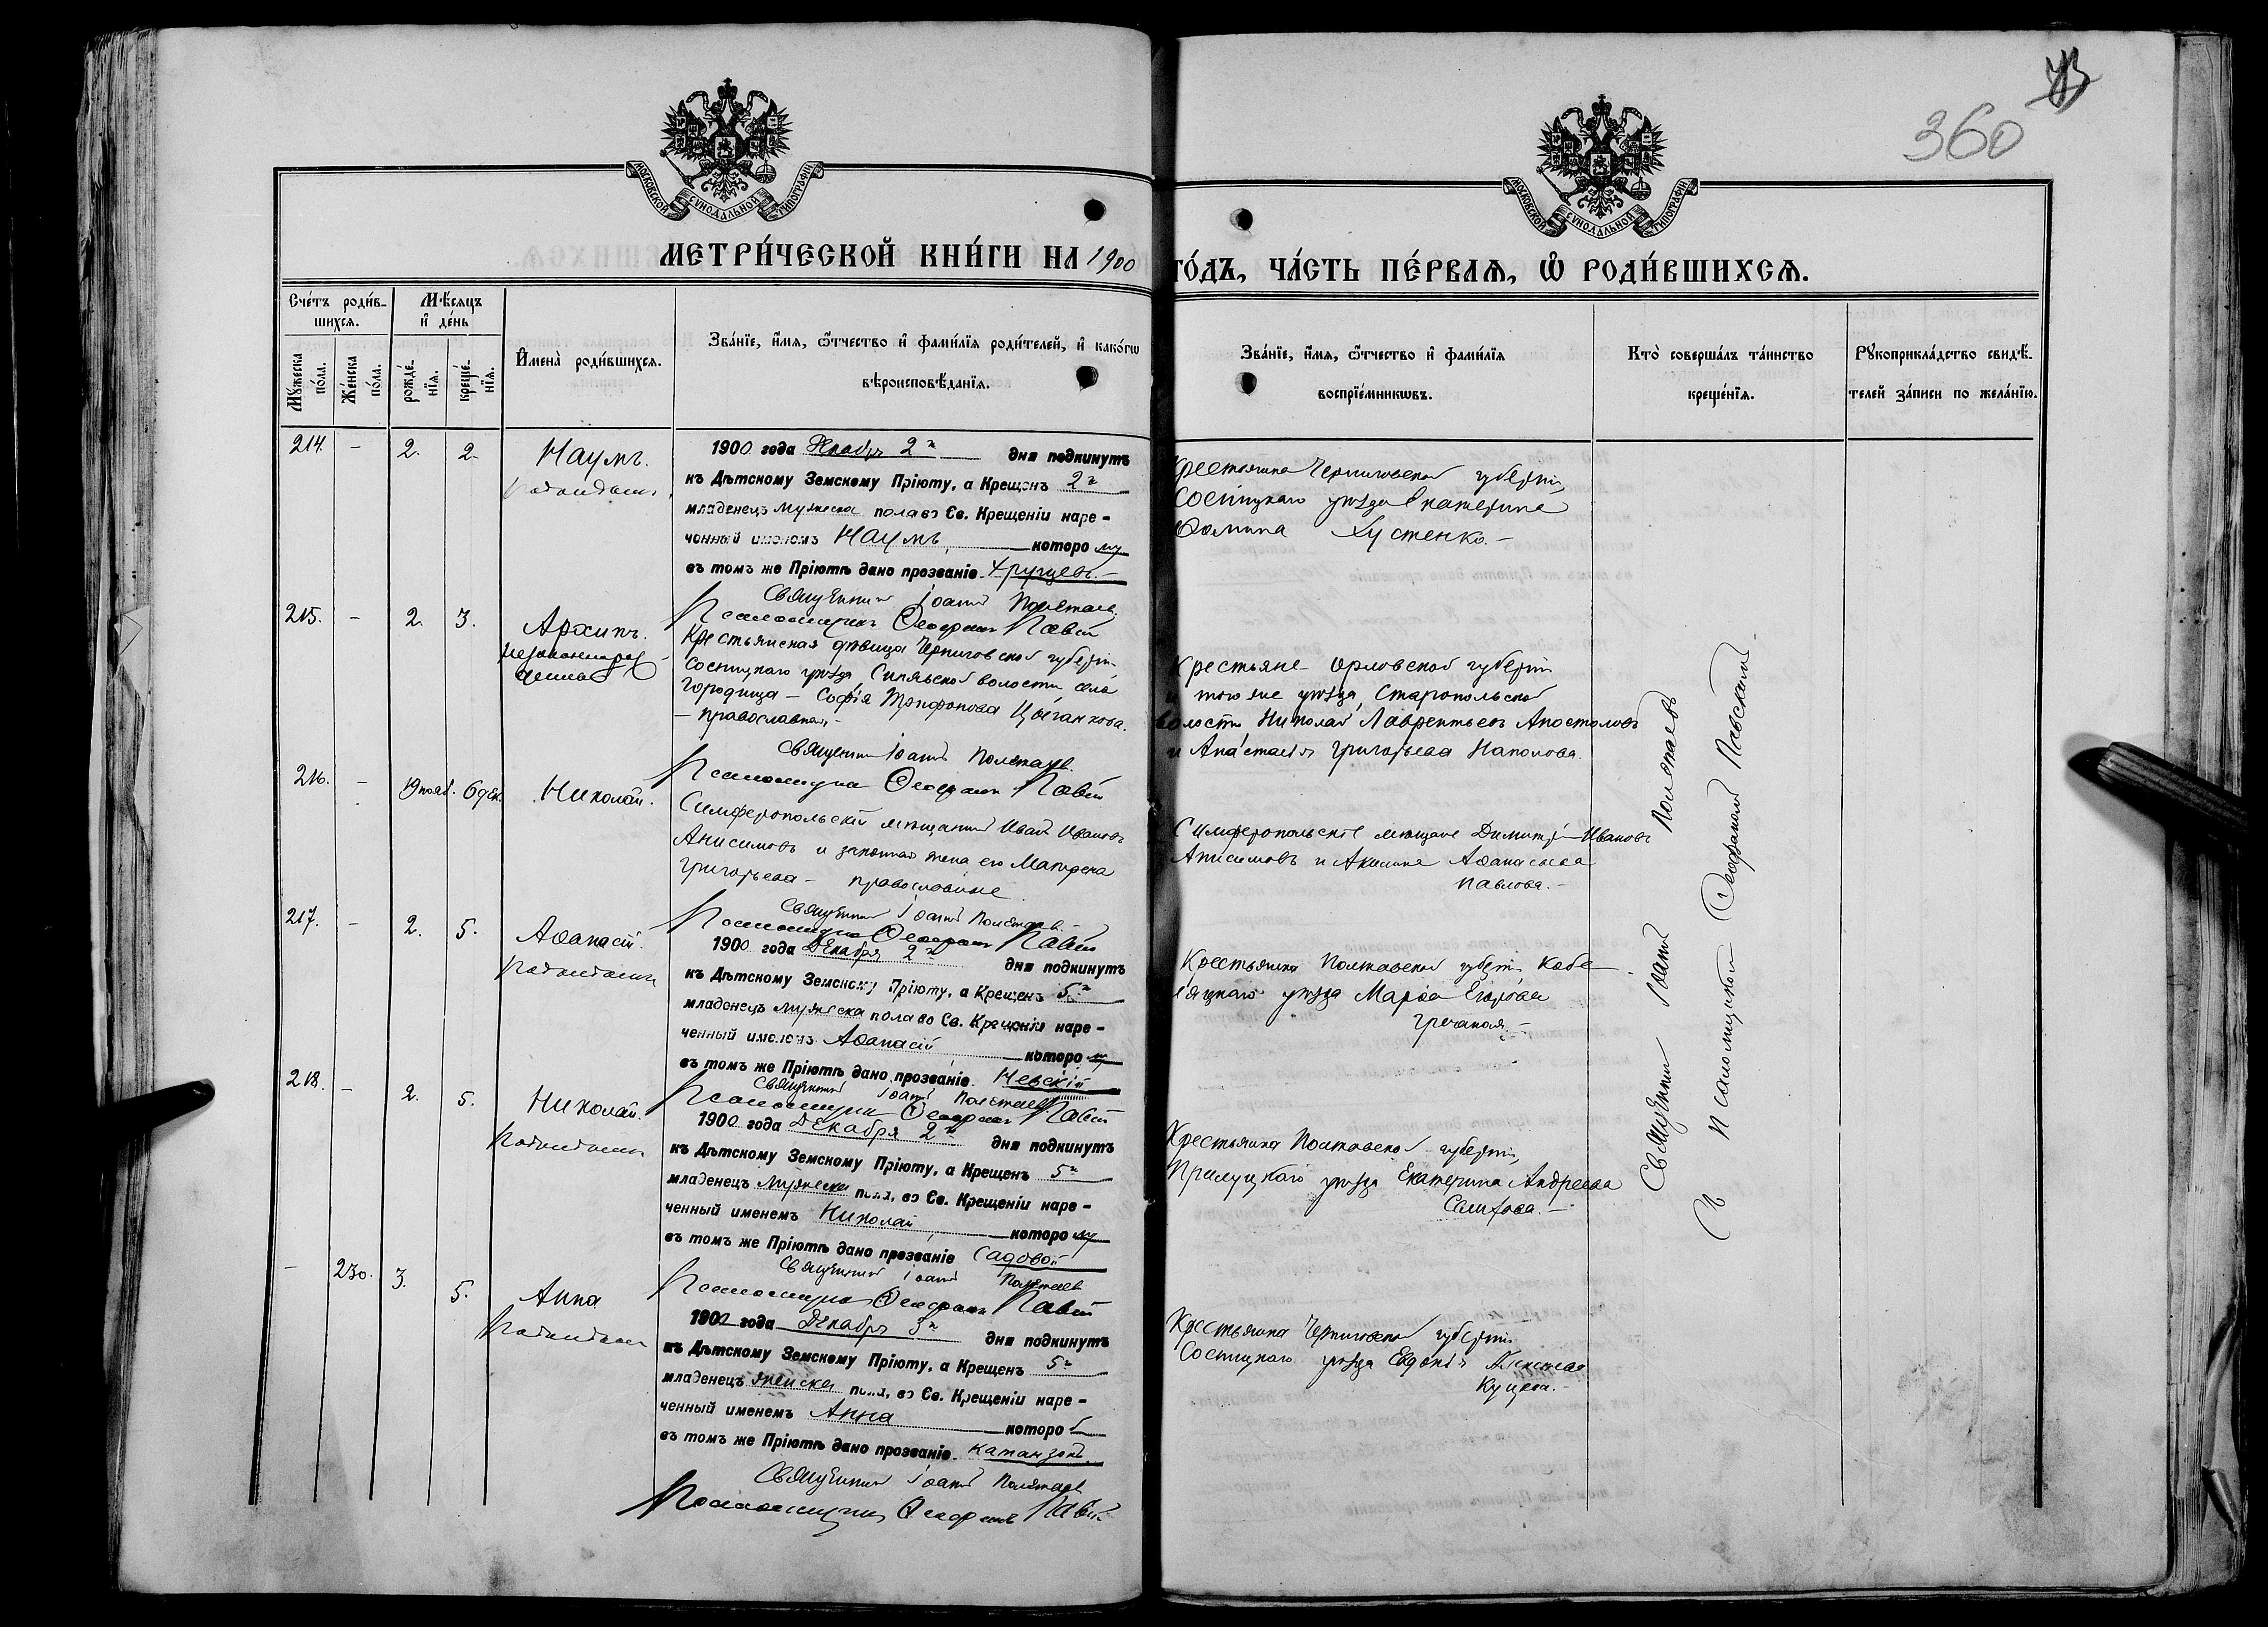 360
МОСКОВСКОЙ СѴНОДАЛЬНОЙ ТИПОГРАФІИ
МОСКОВСКОЙ СѴНОДАЛЬНОЙ ТИПОГРАФІИ
МЕТРИ́ЧЕСКОЙ КНИ́ГИ НА 1900
ГО́ДЪ, ЧА́СТЬ ПЕ́РВАѦ, Ѡ҆ РОДИ́ВШИХСѦ.
Сче́тъ роди́в-
шихсѧ.
Мѣ́сѧцъ
и҆ де́нь
Мꙋ́жеска по́ла.
Же́нска по́ла.
рожде́-нїѧ.
креще́-нїѧ.
И҆мена̀ роди́вшихсѧ.
Зва́нїе, и҆́мѧ, ѻ҆́тчество и҆ фами́лїѧ роди́телей, и҆ како́гѡ
вѣроисповѣ́данїѧ.
Зва́нїе, и҆́мѧ, ѻ҆́тчество и҆ фами́лїѧ
воспрїе́мникѡвъ.
Кто̀ соверша́лъ та́инство
креще́нїѧ.
Рꙋкоприкла́дство свидѣ́-
телей за́писи по жела́нїю.
214. - 2. 2. Наумъ.
1900 года Декабр 2 дня подкинутъ
къ Дѣтскому Земскому Пріюту, а Крещенъ 2
младенецъ мужеска пола во Св. Крещеніи наре-
ченный именемъ Наумъ, которому
въ томъ же Пріютѣ дано прозваніе
Священникъ Іоаннъ Полетаев.
Псаломщикъ Ѳеофанъ Павскій
Крестьянка Черниговской губерніи,
Сосницкаго уѣзда Екатерина
Ѳомина Хустенко.-
215. - 2. 3. Архипъ.
незаконнорож
денный
Крестьянская дѣвица Черниговской губерніи
Сосницкаго уѣзда, волости села
Городища - Софія Трифонова Цыганкова.
- православная.-
Священникъ Іоаннъ Полетаев.
Псаломщикъ Ѳеофанъ Павскій
Крестьяне Орловской губерніи
и того же уѣзда, Старопольской
волости Николай Лаврентьевъ Апостоловъ
и Анастасія Григорьева Наполова.
216. - 19 нояб. 6 дек. Николай.
Симферопольскій мѣщанинъ Иванъ Ивановъ
Анисимовъ и законная жена его Матрена
Григорьева - православные
Священникъ Іоаннъ Полетаев.-
Псаломщикъ Ѳеофанъ Павскій
Симферопольскіе мѣщане Димитрій Ивановъ
Анисимовъ и Акилина Аѳанасьева
Павлова.-
217. - 2. 5. Аѳанасій.
1900 года Декабря 2 дня подкинутъ
къ Дѣтскому Земскому Пріюту, а Крещенъ 5
младенецъ мужеска пола во Св. Крещеніи наре-
ченный именемъ Аѳанасій которому
въ томъ же Пріютѣ дано прозваніе Невскій
Священникъ Іоаннъ Полетаев
Псаломщикъ Ѳеофанъ Павскій
Крестьянка Полтавской губерніи Кобе-
ляцкаго уѣзда Марѳа Егорова
Гречаная.-
218. - 2. 5. Николай.
1900 года Декабря 2 дня подкинутъ
къ Дѣтскому Земскому Пріюту, а Крещенъ 5
младенецъ мужеска пола, во Св. Крещеніи наре-
ченный именемъ Николай, которому
въ томъ же Пріютѣ дано прозваніе Садовой
Священникъ Іоаннъ Полетаев
Псаломщикъ Ѳеофанъ Павскій
Крестьянка Полтавской губерніи,
Прилуцкаго уѣзда Екатерина Андреева
- 230. 3. 5. Анна
1900 года Декабр 3 дня подкинутъ
къ Дѣтскому Земскому Пріюту, а Крещенъ 5
младенецъ женска пола, во Св. Крещеніи наре-
ченный именемъ Анна которой
въ томъ же Пріютѣ дано прозваніе
Священникъ Іоаннъ Полетаев
Псаломщикъ Ѳеофанъ Павскій
Крестьянка Черниговской губерніи
Сосницкаго уѣзда Евдокія
Куцева.-
Священникъ Іоаннъ Полетаевъ
Псаломщикъ Ѳеофанъ Павскій